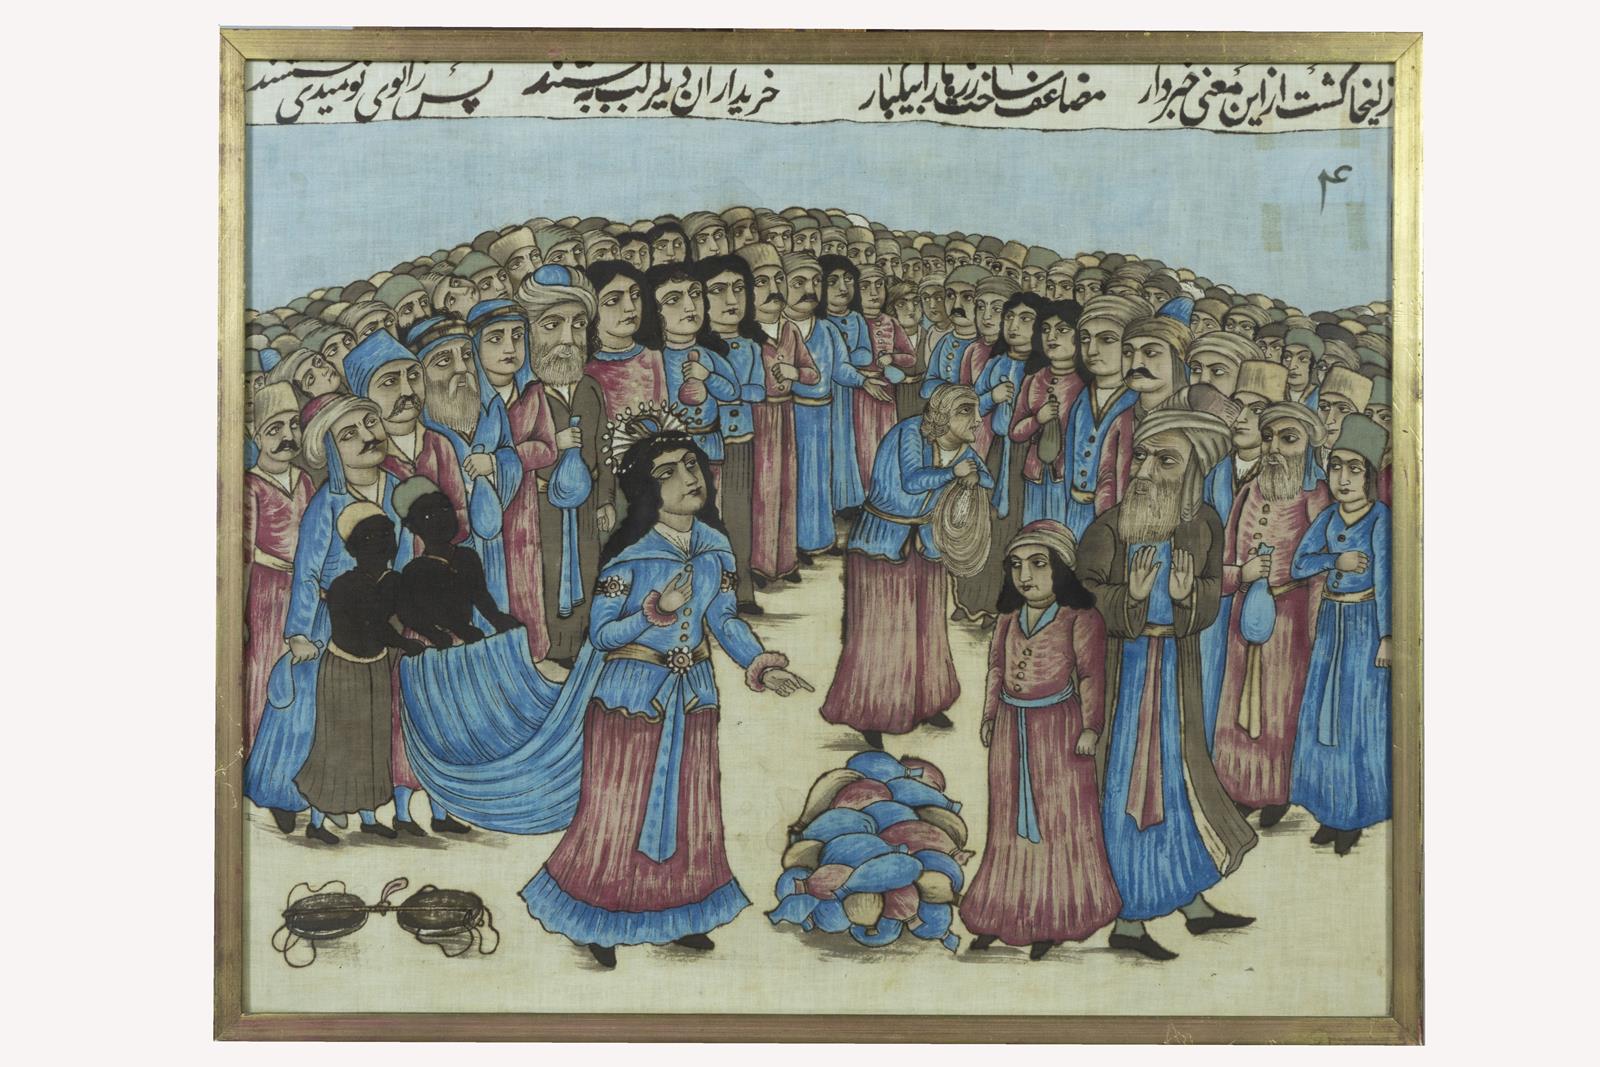 زلیخا گشت ازین معنی خبردار مضاعف ساخت زرها را بیکبار خریداران دیگر لب به بستند پس زانوی نومیدی نشستند
۴